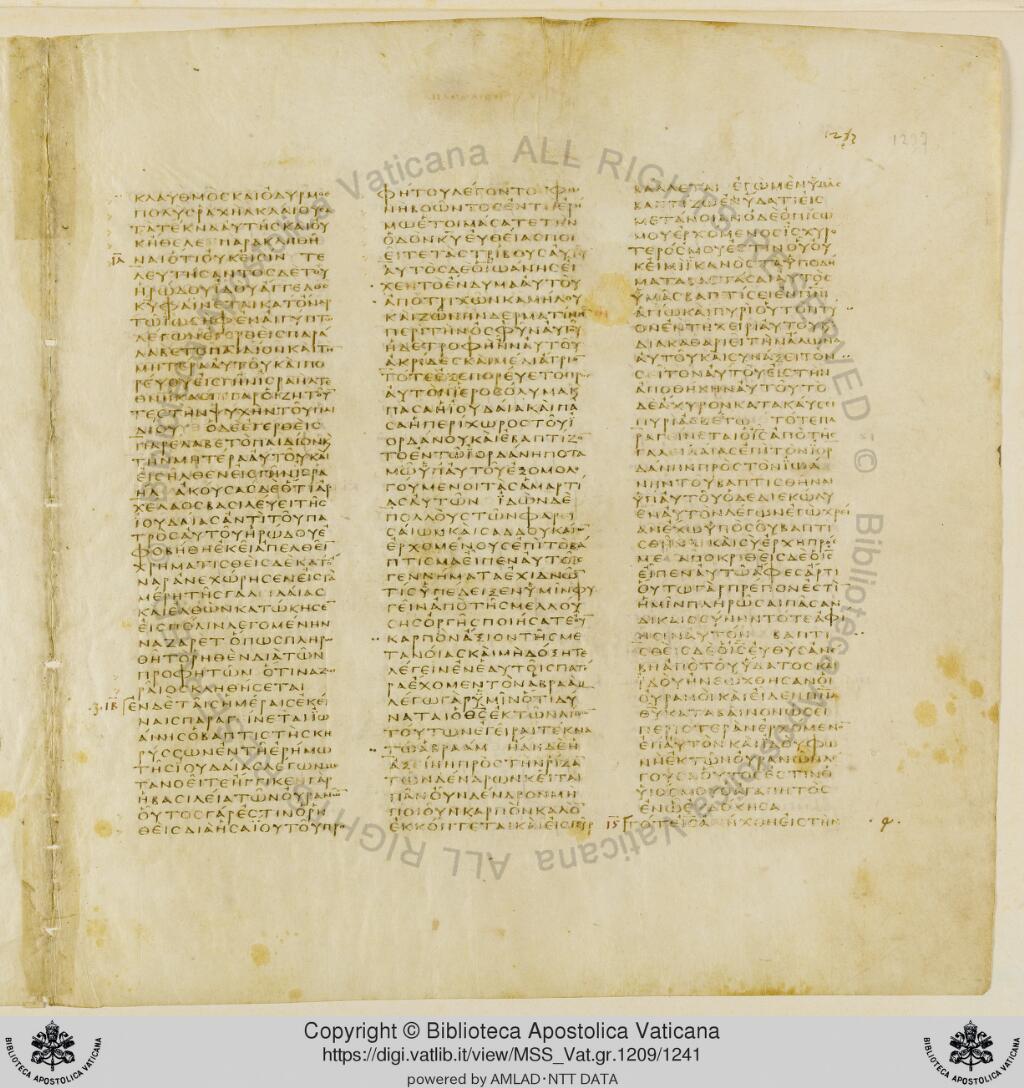 1237
ΚΛΑΥΘΜΟΣΚΑΙΟΔΥΡΜΟΣ
ΠΟΛΥΣΡΑΧΗΛΚΛΑΙΟΥΣΑ
ΤΑΤΕΚΝΑΑΥΤΗΣΚΑΙΟΥ
ΚΗΘΕΛΕΠΑΡΑΚΛΗΘΗ
ΙΑ ΝΑΙΟΤΙΟΥΚΕΙΣΙΝ ΤΕ
ΛΕΥΤΗΣΑΝΤΟΣΔΕΤΟΥ
ΗΡΩΔΟΥΙΔΟΥΑΓΓΕΛΟΣ
ΚΥΦΑΙΝΕΤΑΙΚΑΤΟΝΑΡ
ΤΩΙΩΣΗΦΕΝΑΙΓΥΠΤΩ
ΛΕΓΩΝΕΓΕΡΘΕΙΣΠΑΡΑ
ΛΑΒΕΤΟΠΑΙΔΙΟΝΚΑΙΤΗ
ΜΗΤΕΡΑΑΥΤΟΥΚΑΙΠΟ
ΡΕΥΟΥΕΙΣΓΗΝΙΣΡΑΗΛΤΕ
ΘΝΗΚΑΣΙΓΑΡΟΙΖΗΤΟΥ
ΤΕΣΤΗΝΨΥΧΗΝΤΟΥΠΑΙ
ΔΙΟΥ ΟΔΕΕΓΕΡΘΕΙΣ
ΠΑΡΕΛΑΒΕΤΟΠΑΙΔΙΟΝΚ
ΤΗΝΜΗΤΕΡΑΑΥΤΟΥΚΑΙ
ΕΙΣΗΛΘΕΝΕΙΣΓΗΝΙΣΡΑ
ΗΛ ΑΚΟΥΣΑΣΔΕΟΤΙΑΡ
ΧΕΛΑΟΣΒΑΣΙΛΕΥΕΙΤΗΣ
ΙΟΥΔΑΙΑΣΑΝΤΙΤΟΥΠΑ
ΤΡΟΣΑΥΤΟΥΗΡΩΔΟΥΕ
ΦΟΒΗΘΗΕΚΕΙΑΠΕΛΘΕΙ
ΧΡΗΜΑΤΙΣΘΕΙΣΔΕΚΑΤ
ΝΑΡΑΝΕΧΩΡΗΣΕΝΕΙΣΤΑ
ΜΕΡΗΤΗΣΓΑΛΙΛΑΙΑΣ
ΚΑΙΕΛΘΩΝΚΑΤΩΚΗΣΕ
ΕΙΣΠΟΛΙΝΛΕΓΟΜΕΝΗΝ
ΝΑΖΑΡΕΤ ΟΠΩΣΠΛΗΡ
ΘΗΤΟΡΗΘΕΝΔΙΑΤΩΝ
ΠΡΟΦΗΤΩΝ ΟΤΙΝΑΖΩ
ΡΑΙΟΣΚΛΗΘΗΣΕΤΑΙ
ΙΒ ΕΝΔΕΤΑΙΣΗΜΕΡΑΙΣΕΚΕΙ
ΝΑΙΣΠΑΡΑΓΙΝΕΤΑΙΙΩ
ΑΝΗΣΟΒΑΠΤΙΣΤΗΣΚΗ
ΡΥΣΣΩΝΕΝΤΗΕΡΗΜΩ
ΤΗΣΙΟΥΔΑΙΑΣΛΕΓΩΝΜΕ
ΤΑΝΟΕΙΤΕΗΓΓΙΚΕΝΓΑΡ
ΗΒΑΣΙΛΕΙΑΤΩΝΟΥΡΑΝΩ
ΟΥΤΟΣΓΑΡΕΣΤΙΝΟΡΗ
ΘΕΙΣΔΙΑΗΣΑΙΟΥΤΟΥΠΡΟ
ΦΗΤΟΥΛΕΓΟΝΤΟΣΦΩ
ΝΗΒΟΩΝΤΟΣΕΝΤΗΕΡΗ
ΜΩΕΤΟΙΜΑΣΑΤΕΤΗΝ
ΟΔΟΝΚΥΕΥΘΕΙΑΣΠΟΙ
ΕΙΤΕΤΑΣΤΡΙΒΟΥΣΑΥΤΟΥ
ΑΥΤΟΣΔΕΟΙΩΑΝΗΣΕΙ
ΧΕΝΤΟΕΝΔΥΜΑΑΥΤΟΥ
ΑΠΟΤΡΙΧΩΝΚΑΜΗΛΟΥ
ΚΑΙΖΩΝΗΝΔΕΡΜΑΤΙΝΗ
ΠΕΡΙΤΗΝΟΣΦΥΝΑΥΤΟΥ
ΗΔΕΤΡΟΦΗΗΝΑΥΤΟΥ
ΑΚΡΙΔΕΣΚΑΙΜΕΛΙΑΓΡΙΟ
ΤΟΤΕΕΞΕΠΟΡΕΥΕΤΟΠΡ
ΑΥΤΟΝΙΕΡΟΣΟΛΥΜΑΚ
ΠΑΣΑΗΙΟΥΔΑΙΑΚΑΙΠΑ
ΣΑΗΠΕΡΙΧΩΡΟΣΤΟΥΙ
ΟΡΔΑΝΟΥΚΑΙΕΒΑΠΤΙΖ
ΤΟΕΝΤΩΙΟΡΔΑΝΗΠΟΤΑ
ΜΩΥΠΑΥΤΟΥΕΞΟΜΟΛ
ΓΟΥΜΕΝΟΙΤΑΣΑΜΑΡΤΙ
ΑΣΑΥΤΩΝ ΙΔΩΝΔΕ
ΠΟΛΛΟΥΣΤΩΝΦΑΡΕΙ
ΣΑΙΩΝΚΑΙΣΑΔΔΟΥΚΑΙΩ
ΕΡΧΟΜΕΝΟΥΣΕΠΙΤΟΒΑ
ΠΤΙΣΜΑΕΙΠΕΝΑΥΤΟΙΣ
ΓΕΝΝΗΜΑΤΑΕΧΙΔΝΩ
ΤΙΣΥΠΕΔΕΙΞΕΝΥΜΙΝΦΥ
ΓΕΙΝΑΠΟΤΗΣΜΕΛΛΟΥ
ΣΗΣΟΡΓΗΣΠΟΙΗΣΑΤΕΟΥ
ΚΑΡΠΟΝΑΞΙΟΝΤΗΣΜΕ
ΤΑΝΟΙΑΣΚΑΙΜΗΔΟΞΗΤΕ
ΛΕΓΕΙΝΕΝΕΑΥΤΟΙΣΠΑΤΕ
ΡΑΕΧΟΜΕΝΤΟΝΑΒΡΑΑΜ
ΛΕΓΩΓΑΡΥΜΙΝΟΤΙΔΥ
ΝΑΤΑΙΟΘΣΕΚΤΩΝΛΙΘ
ΤΟΥΤΩΝΕΓΕΙΡΑΙΤΕΚΝΑ
ΤΩΑΒΡΑΑΜ ΗΔΗΔΕΗ
ΑΞΕΙΝΗΠΡΟΣΤΗΝΡΙΖΑ
ΤΩΝΔΕΝΔΡΩΝΚΕΙΤΑΙ
ΠΑΝΟΥΝΔΕΝΔΡΟΝΜΗ
ΠΟΙΟΥΝΚΑΡΠΟΝΚΑΛΟ
ΕΚΚΟΠΤΕΤΑΙΚΑΙΕΙΣΠΥΡ
ΒΑΛΛΕΤΑΙ ΕΓΩΜΕΝΥΜΑΣ
ΒΑΠΤΙΖΩΕΝΥΔΑΤΙΕΙΣ
ΜΕΤΑΝΟΙΑΝΟΔΕΟΠΙΣΩ
ΜΟΥΕΡΧΟΜΕΝΟΣΙΣΧΥΡΟ
ΤΕΡΟΣΜΟΥΕΣΤΙΝΟΥΟΥ
ΚΕΙΜΙΙΚΑΝΟΣΤΑΥΠΟΔΗ
ΜΑΤΑΒΑΣΤΑΣΑΙΑΥΤΟΣ
ΥΜΑΣΒΑΠΤΙΣΕΙΕΝΠΝΙ
ΑΓΙΩΚΑΙΠΥΡΙΟΥΤΟΠΤΥ
ΟΝΕΝΤΗΧΕΙΡΙΑΥΤΟΥΚ
ΔΙΑΚΑΘΑΡΙΕΙΤΗΝΑΛΩΝΑ
ΑΥΤΟΥΚΑΙΣΥΝΑΞΕΙΤΟΝ
ΣΕΙΤΟΝΑΥΤΟΥΕΙΣΤΗΝ
ΑΠΟΘΗΚΗΝΑΥΤΟΥΤΟ
ΔΕΑΧΥΡΟΝΚΑΤΑΚΑΥΣΕΙ
ΠΥΡΙΑΣΒΕΣΤΩ ΤΟΤΕΠΑ
ΡΑΓΕΙΝΕΤΑΙΟΙΣΑΠΟΤΗΣ
ΓΑΛΕΙΛΑΙΑΣΕΠΙΤΟΝΙΟΡ
ΔΑΝΗΝΠΡΟΣΤΟΝΙΩΑ
ΝΗΝΤΟΥΒΑΠΤΙΣΘΗΝΑΙ
ΥΠΑΥΤΟΥΟΔΕΔΙΕΚΩΛΥ
ΕΝΑΥΤΟΝΛΕΓΩΝΕΓΩΧΡΕΙ
ΑΝΕΧΩΥΠΟΣΟΥΒΑΠΤΙ
ΣΘΗΝΑΙΚΑΙΣΥΕΡΧΗΠΡΟΣ
ΜΕ ΑΠΟΚΡΙΘΕΙΣΔΕΟΙΣ
ΕΙΠΕΝΑΥΤΩΑΦΕΣΑΡΤΙ
ΟΥΤΩΓΑΡΠΡΕΠΟΝΕΣΤΙ
ΗΜΙΝΠΛΗΡΩΣΑΙΠΑΣΑΝ
ΔΙΚΑΙΟΣΥΝΗΝΤΟΤΕΑΦΙ
ΗΣΙΝΑΥΤΟΝ ΒΑΠΤΙ
ΣΘΕΙΣΔΕΟΙΣΕΥΘΥΣΑΝΕ
ΒΗΑΠΟΤΟΥΥΔΑΤΟΣΚΑΙ
ΙΔΟΥΗΝΕΩΧΘΗΣΑΝΟΙ
ΟΥΡΑΝΟΙΚΑΙΕΙΔΕΝΠΝΑ
ΘΥΚΑΤΑΒΑΙΝΟΝΩΣΕΙ
ΠΕΡΙΣΤΕΡΑΝΕΡΧΟΜΕΝ
ΕΠΑΥΤΟΝΚΑΙΙΔΟΥΦΩ
ΝΗΕΚΤΩΝΟΥΡΑΝΩΝΛΕ
ΓΟΥΣΑΟΥΤΟΣΕΣΤΙΝΟ
ΥΙΟΣΜΟΥΟΑΓΑΠΗΤΟΣ
ΕΝΩΕΥΔΟΚΗΣΑ
ΙΣ ΤΟΤΕΙΣΑΝΗΧΘΗΕΙΣΤΗΝ
Vaticana ALL RIGHTS RESERVED © Biblioteca Apostolica Vaticana ALL RIGHTS
BIBLIOTECA APOSTOLICA VATICANA
Copyright © Biblioteca Apostolica Vaticana
https://digi.vatlib.it/view/MSS_Vat.gr.1209/1241
powered by AMLAD·NTT DATA
BIBLIOTECA APOSTOLICA VATICANA